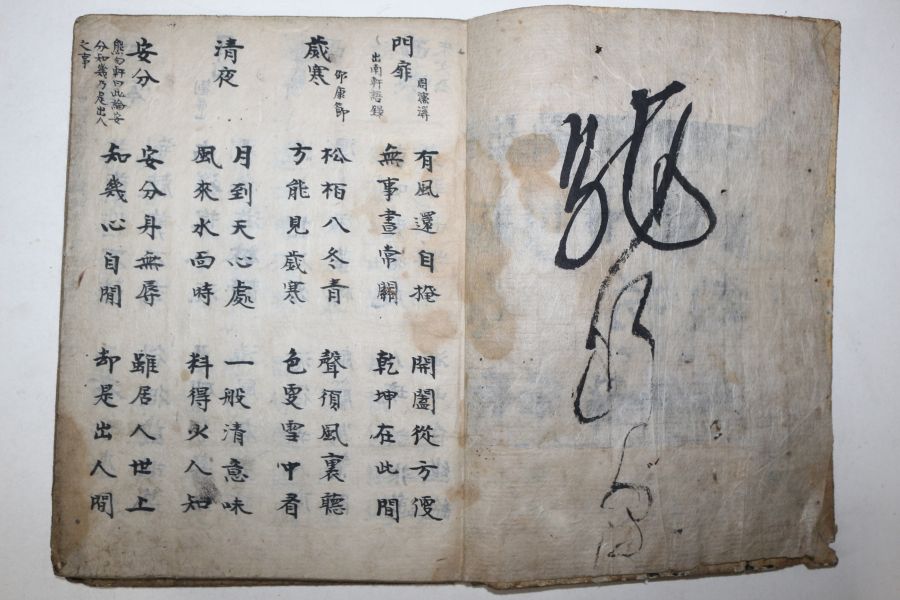 門扉
周濂溪
出南軒語錄
有風還自掩 開闔從方便
無事晝常關 乾坤在此間
歲寒
邵康節
松栢入冬青 聲須風裏聽
方能見歲寒 色更雪中看
清夜
月到天心處 一般清意味
風來水面時 料得少人知
安分
熊勿軒曰此論安
分知幾乃是出人
之事
安分身無辱 雖居人世上
知幾心自閒 却是出人間